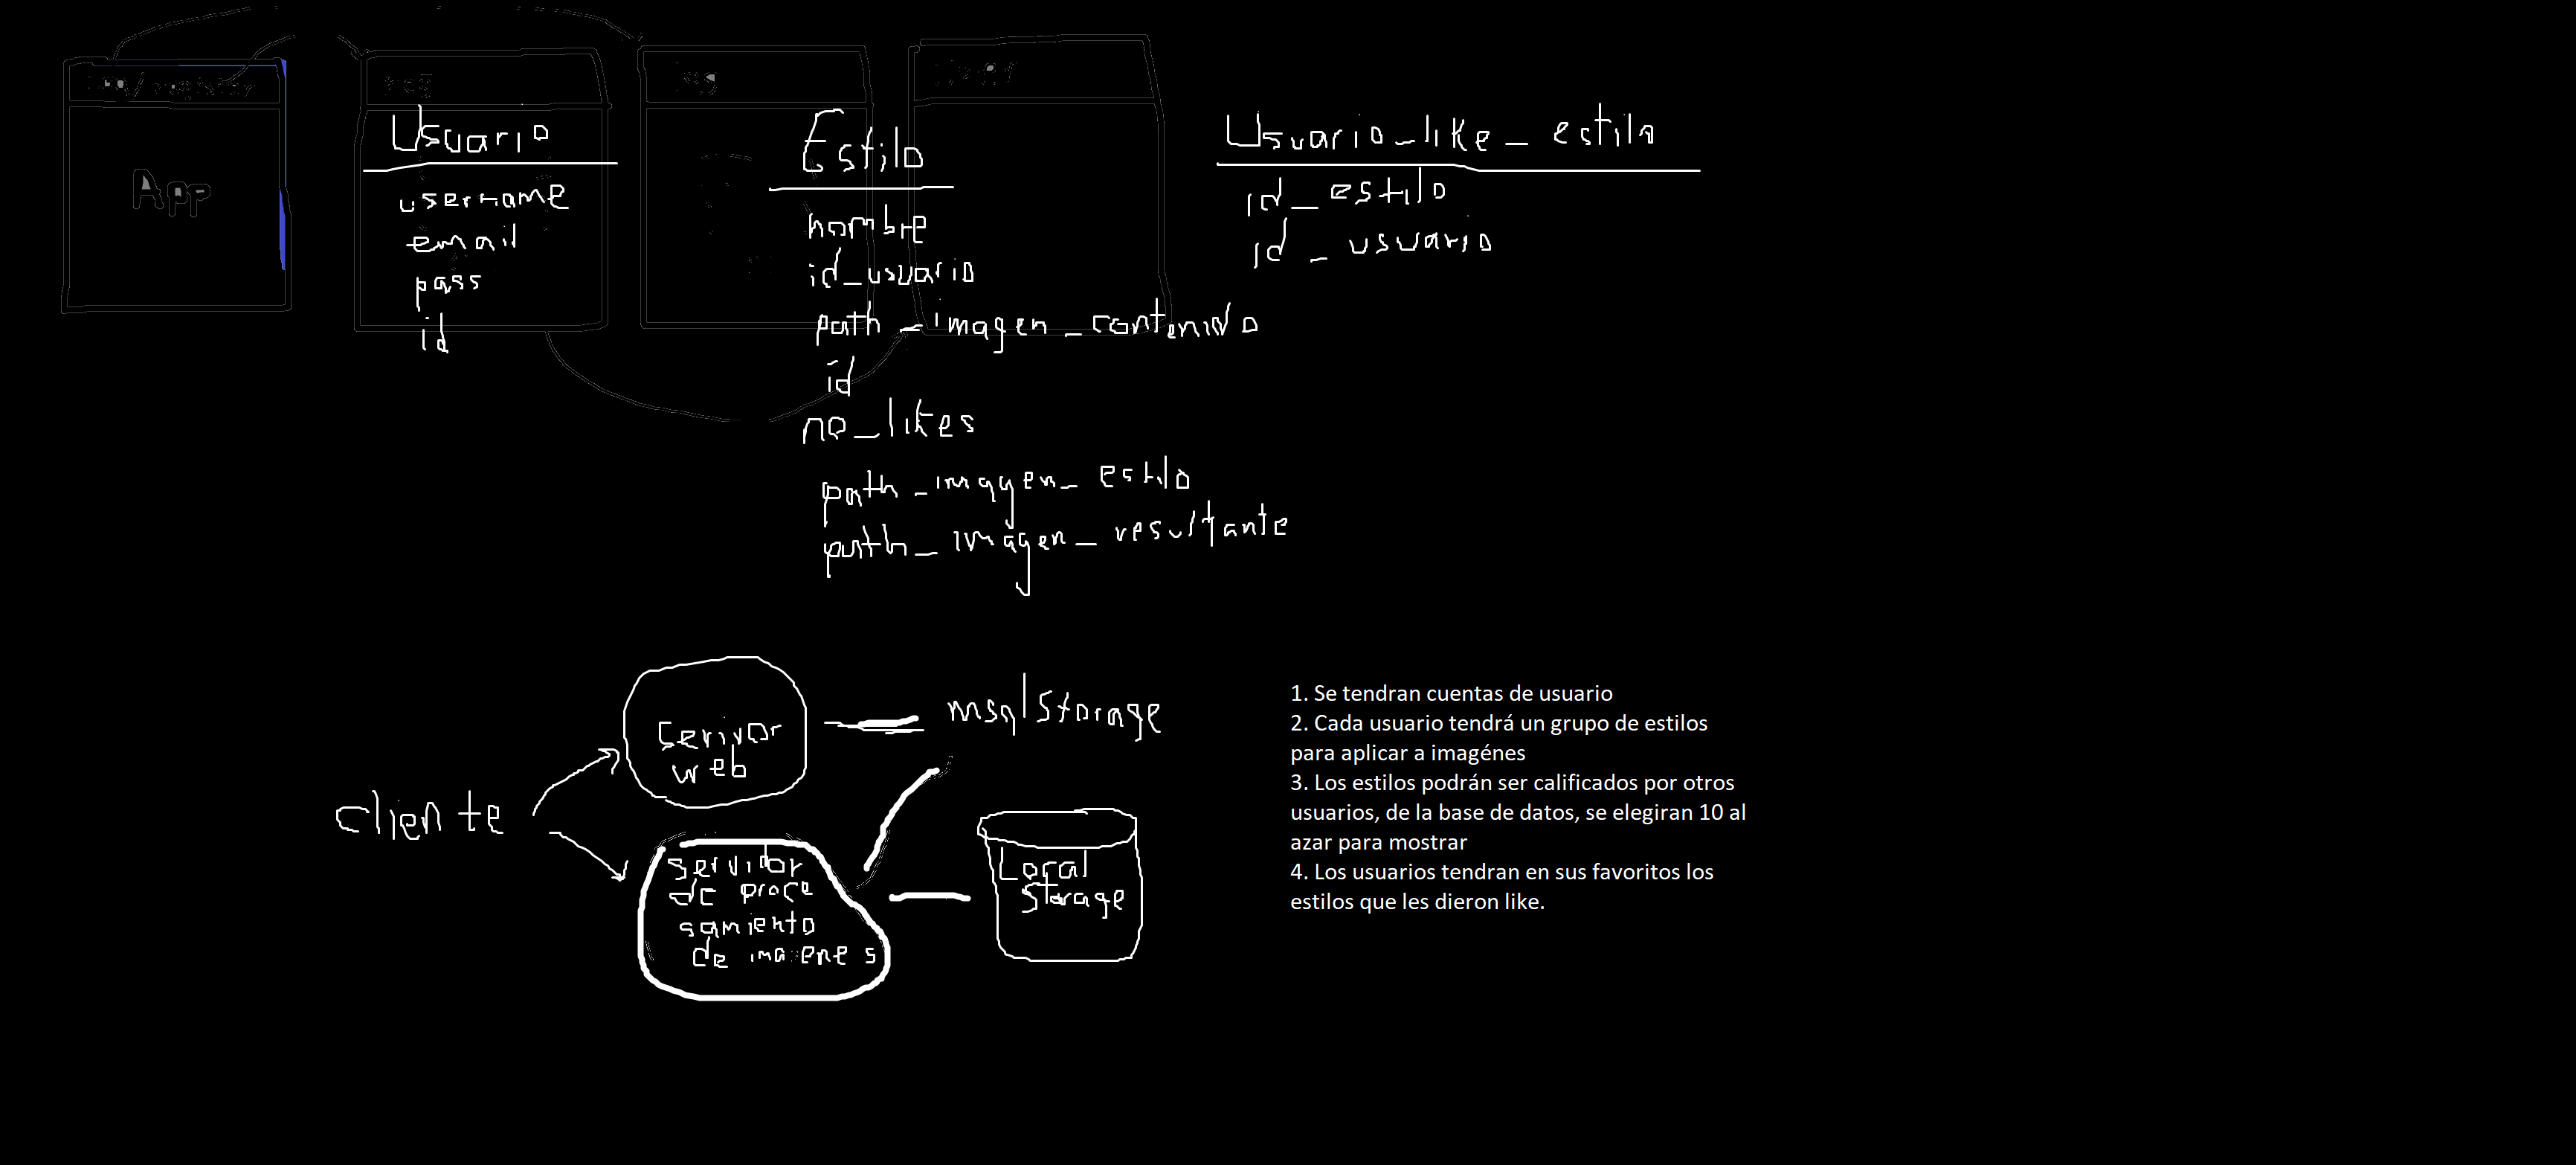 App
Usuario
username
email
pass
id
Estilo
nombre
id_usuario
path_imagen_contenido
id
no_likes
path_imagen_estilo
path_imagen_resultante
Usuario_like_estilo
id_estilo
id_usuario
cliente
web
msqlStorage
servidor
de proce
samiento
de imagenes
Local
Storage
1. Se tendran cuentas de usuario
2. Cada usuario tendrá un grupo de estilos
para aplicar a imagénes
3. Los estilos podrán ser calificados por otros
usuarios, de la base de datos, se elegiran 10 al
azar para mostrar
4. Los usuarios tendran en sus favoritos los
estilos que les dieron like.